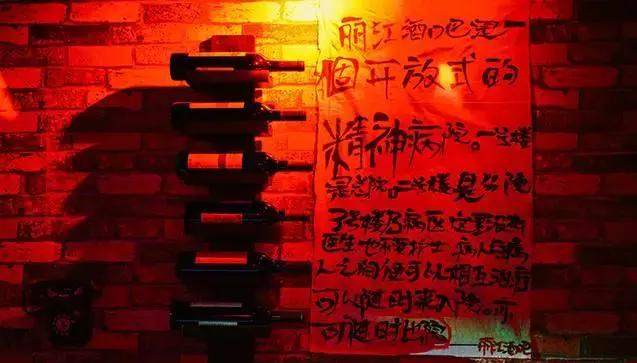 丽江酒吧是一
個开放式的
精神病院。一号楼
是总院。二号楼是分院
3号楼乃病区 这里没有
医生也不要护士 病人与病
人之间便可以相互治疗
可以随时来入院。亦
可随时出院
丽江酒吧